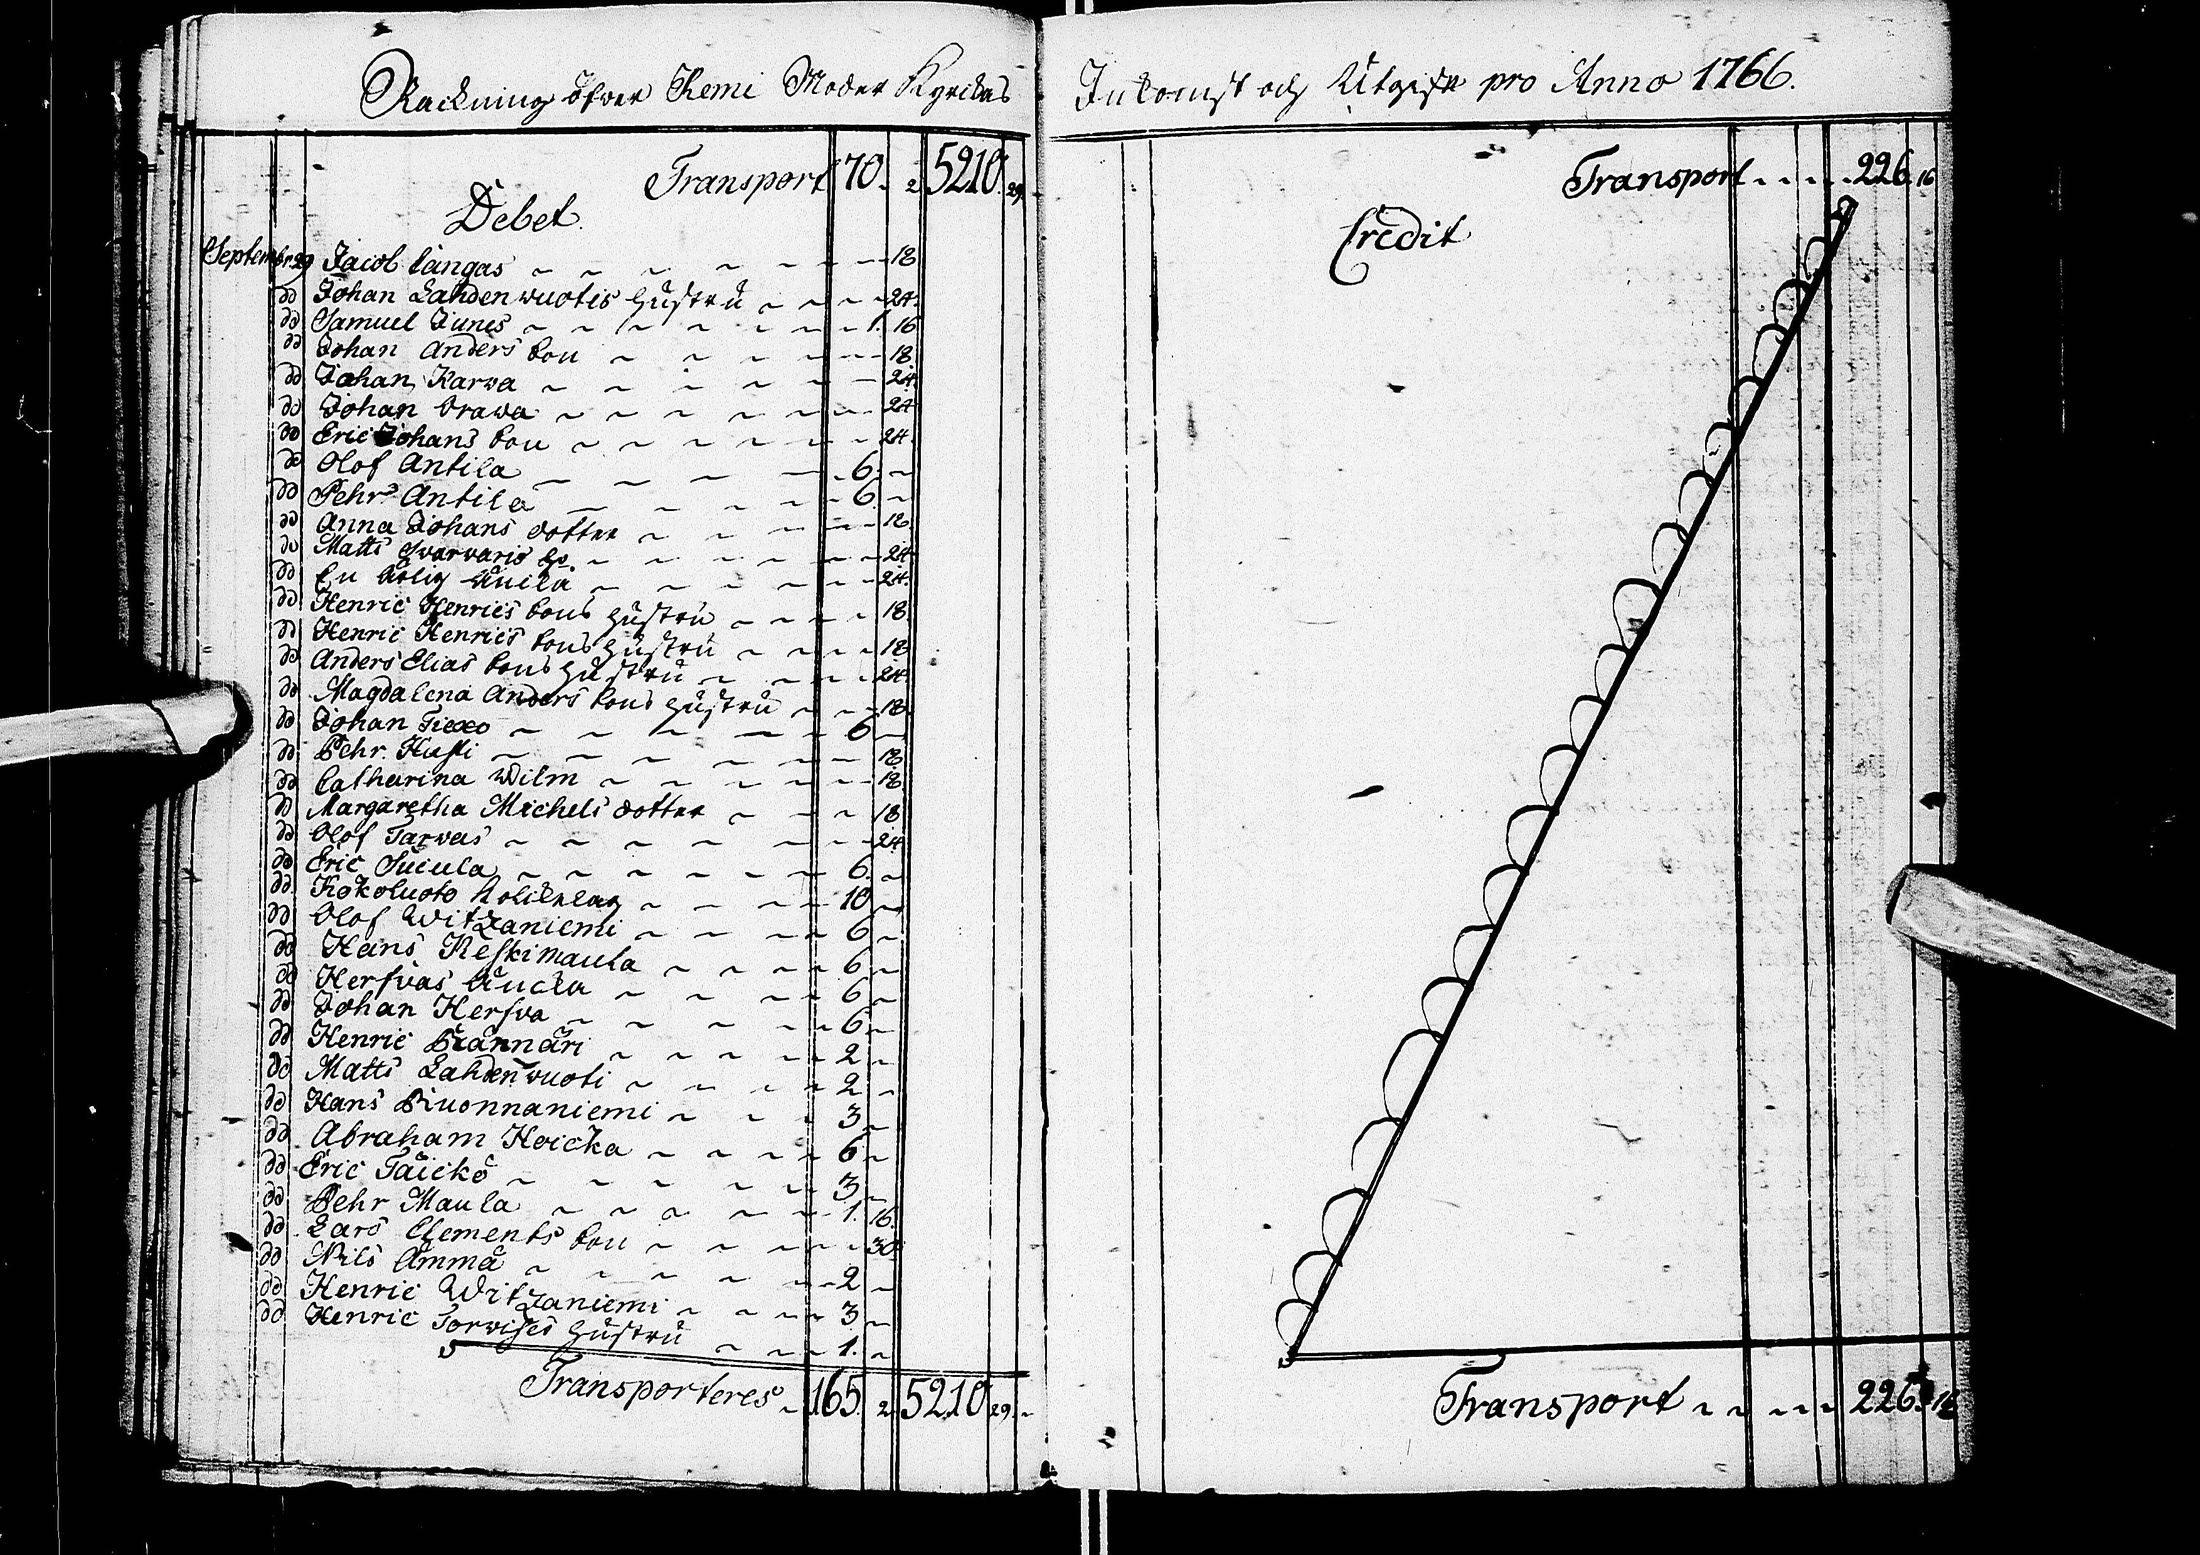 Räckning öfwer Kemi Moder Kyrckas
Transport 70. 2 5210. 29.
Debet.
Septembr 29 Jacob Långas 18
dd Johan Lahdenwuotis hustru 24.
dd Samuel Junes 1. 16
dd Johan Anders son 18
dd Johan Karwa 24.
dd Johan Orawa 24
dd Eric Johans son 24.
dd Olof Antila 6.
dd Pehr Antila 6.
dd Anna Johans dotter 18.
dd Matts 24
dd En 24.
dd Henric Henrics sons hustru 18.
dd Henric Henrics sons hustru 18
dd Anders Elias sons hustru 24.
dd Magdalena Anders sons hustru 18.
dd Johan Tiexo 6
dd Pehr 18
dd Catharina Wilm 18
dd Margaretha Michels dotter 18
dd Olof Tarwas 24
dd Eric Sucula 6.
dd Kokoluoto 10
dd Olof Witzaniemi 6
dd Hans Keskimaula 6
dd Herfvas Änckia 6
dd Johan Herfva 6
dd Henric Brännäri 2
dd Matts Lahdenwuoti 2
dd Hans Ruonnaniemi 3
dd Abraham Hoicka 6
dd Eric Täickö 3
dd Pehr Maula 1. 16.
dd Lars Clements son 30
dd Nils Ämmä 2
dd Henric Witzaniemi 3
dd Henric Torwises hustru 1.
Transporteres 165. 2. 5210. 29.
Inkomst och Utgift pro Anno 1766.
Transport 226. 16
Credit
Transport 226. 16